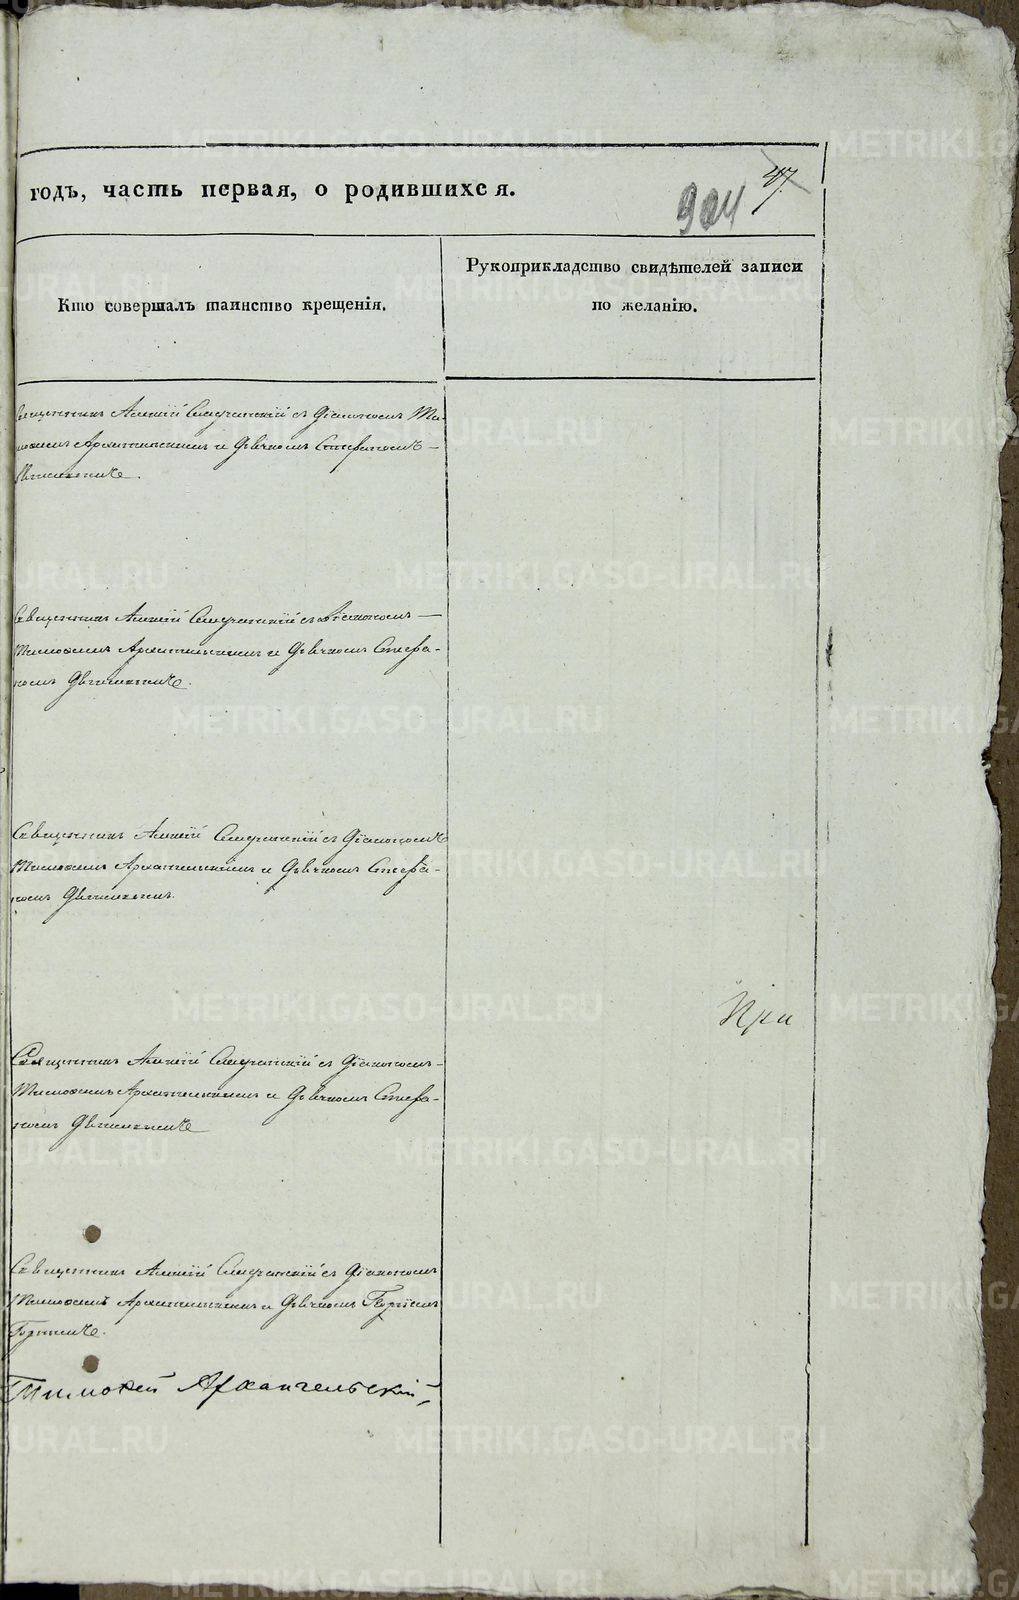 годъ, часть первая, о родившихся.
904
47
Кто совершалъ таинство крещенія.
Рукоприкладство свидѣтелей записи
по желанію.
Священникъ Алексій с Діакономъ Ти-
моѳеемъ Архангельскимъ и Дьячкомъ Стефаномъ
Священникъ Алексій с Діакономъ
Тимоѳеемъ Архангельскимъ и Дьячкомъ Стефа-
номъ
Священникъ Алексій с Діакономъ
Тимоѳеемъ Архангельскимъ и Дьячкомъ Стефа-
номъ
При
Священникъ Алексій с Діакономъ
Тимоѳеемъ Архангельскимъ и Дьячкомъ Стефа-
номъ
Священникъ Алексій с Діакономъ
Тимоѳеемъ Архангельскимъ и Дьячкомъ Георгіемъ
Тимоѳей Архангельскій
METRIKI.GASO-URAL.RU